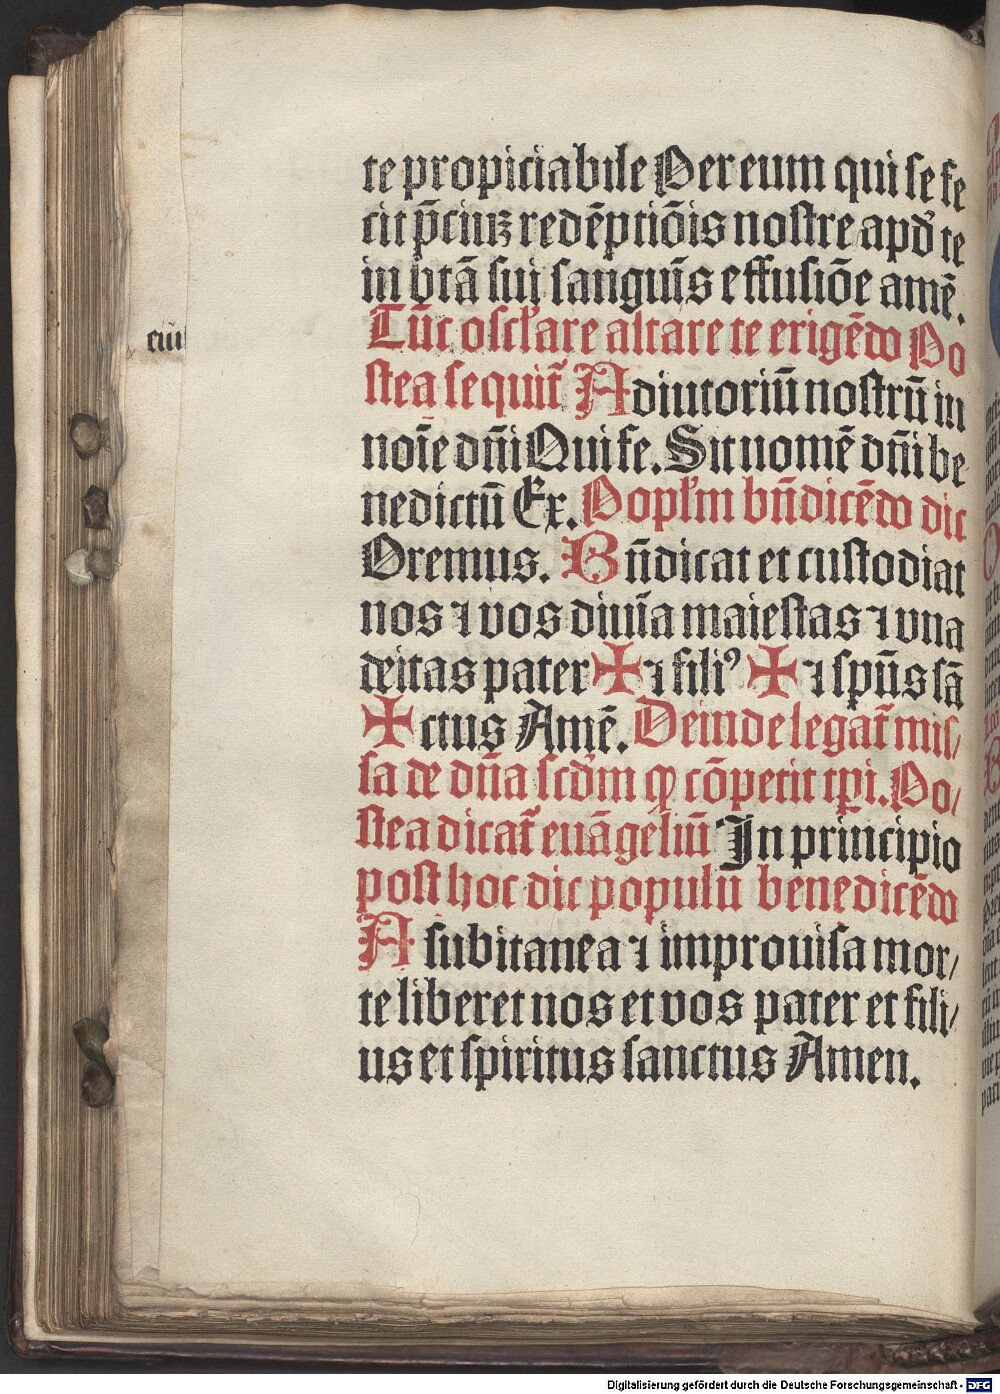 te propiciabile Per eum qui se fe
cit p̄ciuꝫ redēptiōis nostre apd̛ te
in vtā sui sanguīs effusiōe amē.
Tūc oscl̛are altare te erigēdo Po
stea sequit᷑ Adiutoriū nostrū in
noīe dn̄i Qui fe. Sit nomē dn̄i be
nedictū Ex. Popl̛m bn̄dicēdo dic
Oremus. Bn̄dicat et custodiat
nos ⁊ vos diuīa maiestas ⁊ vna
deitas pater ✠ ⁊ filiꝰ ✠ ⁊ spūs sā
✠ ctus Amē. Deinde legat᷑ mis/
sa de dn̄a scd̛m ꝙ cōpetit tp̄i. Po/
stea dicat᷑ euāgeliū In principio
post hoc dic populū benedicēdo
A subitanea ⁊ improuisa mor/
te liberet nos et vos pater et fili/
us et spiritus sanctus Amen.
Digitalisierung gefördert durch die Deutsche Forschungsgemeinschaft - DFG